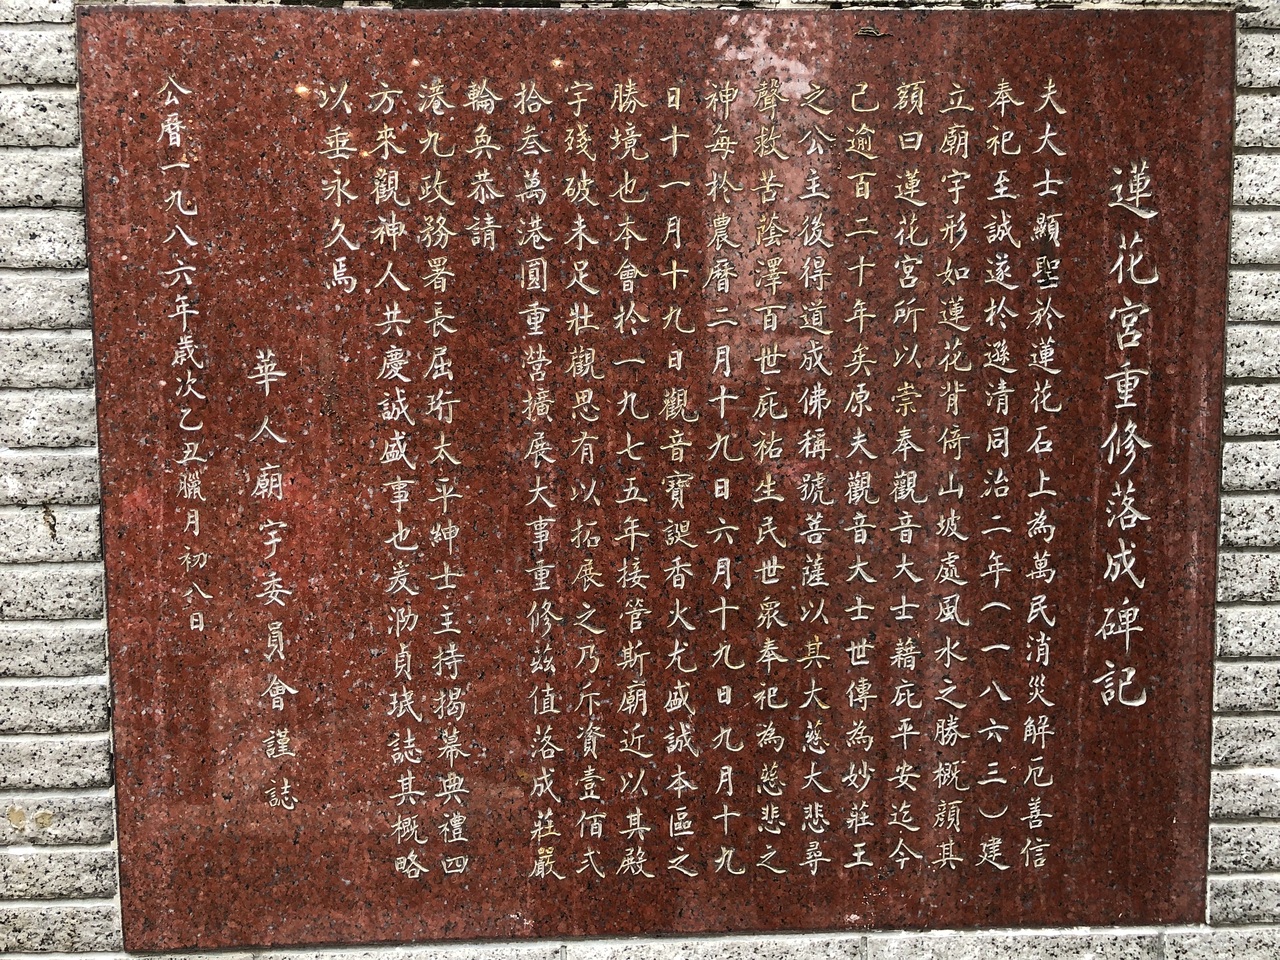 蓮花宮重修落成碑記
夫大士顯聖於蓮花石上為萬民消災解厄善信
奉祀至誠遂於遜清同治二年(一八六三)建
立廟宇形如蓮花背倚山坡處風水之勝概顏其
額曰蓮花宮所以崇奉觀音大士藉庇平安迄今
已逾百二十年矣原夫觀音大士世傳為妙莊王
之公主後得道成佛稱號菩薩以其大慈大悲尋
聲救苦蔭澤百世庇祐生民世眾奉祀為慈悲之
神每於農曆二月十九日六月十九日九月十九
日十一月十九日觀音寶誕香火尤盛誠本區之
勝境也本會於一九七五年接管斯廟近以其殿
宇殘破未足壯觀思有以拓展之乃斥資壹佰弍
拾叁萬港圓重營擴展大事重修茲值落成莊嚴
輪奐恭請
港九政務署長屈珩太平紳士主持揭幕典禮四
方來觀神人共慶誠盛事也爰泐貞珉誌其概略
以垂永久焉
華人廟宇委員會謹誌
公曆一九八六年歲次乙丑臘月初八日